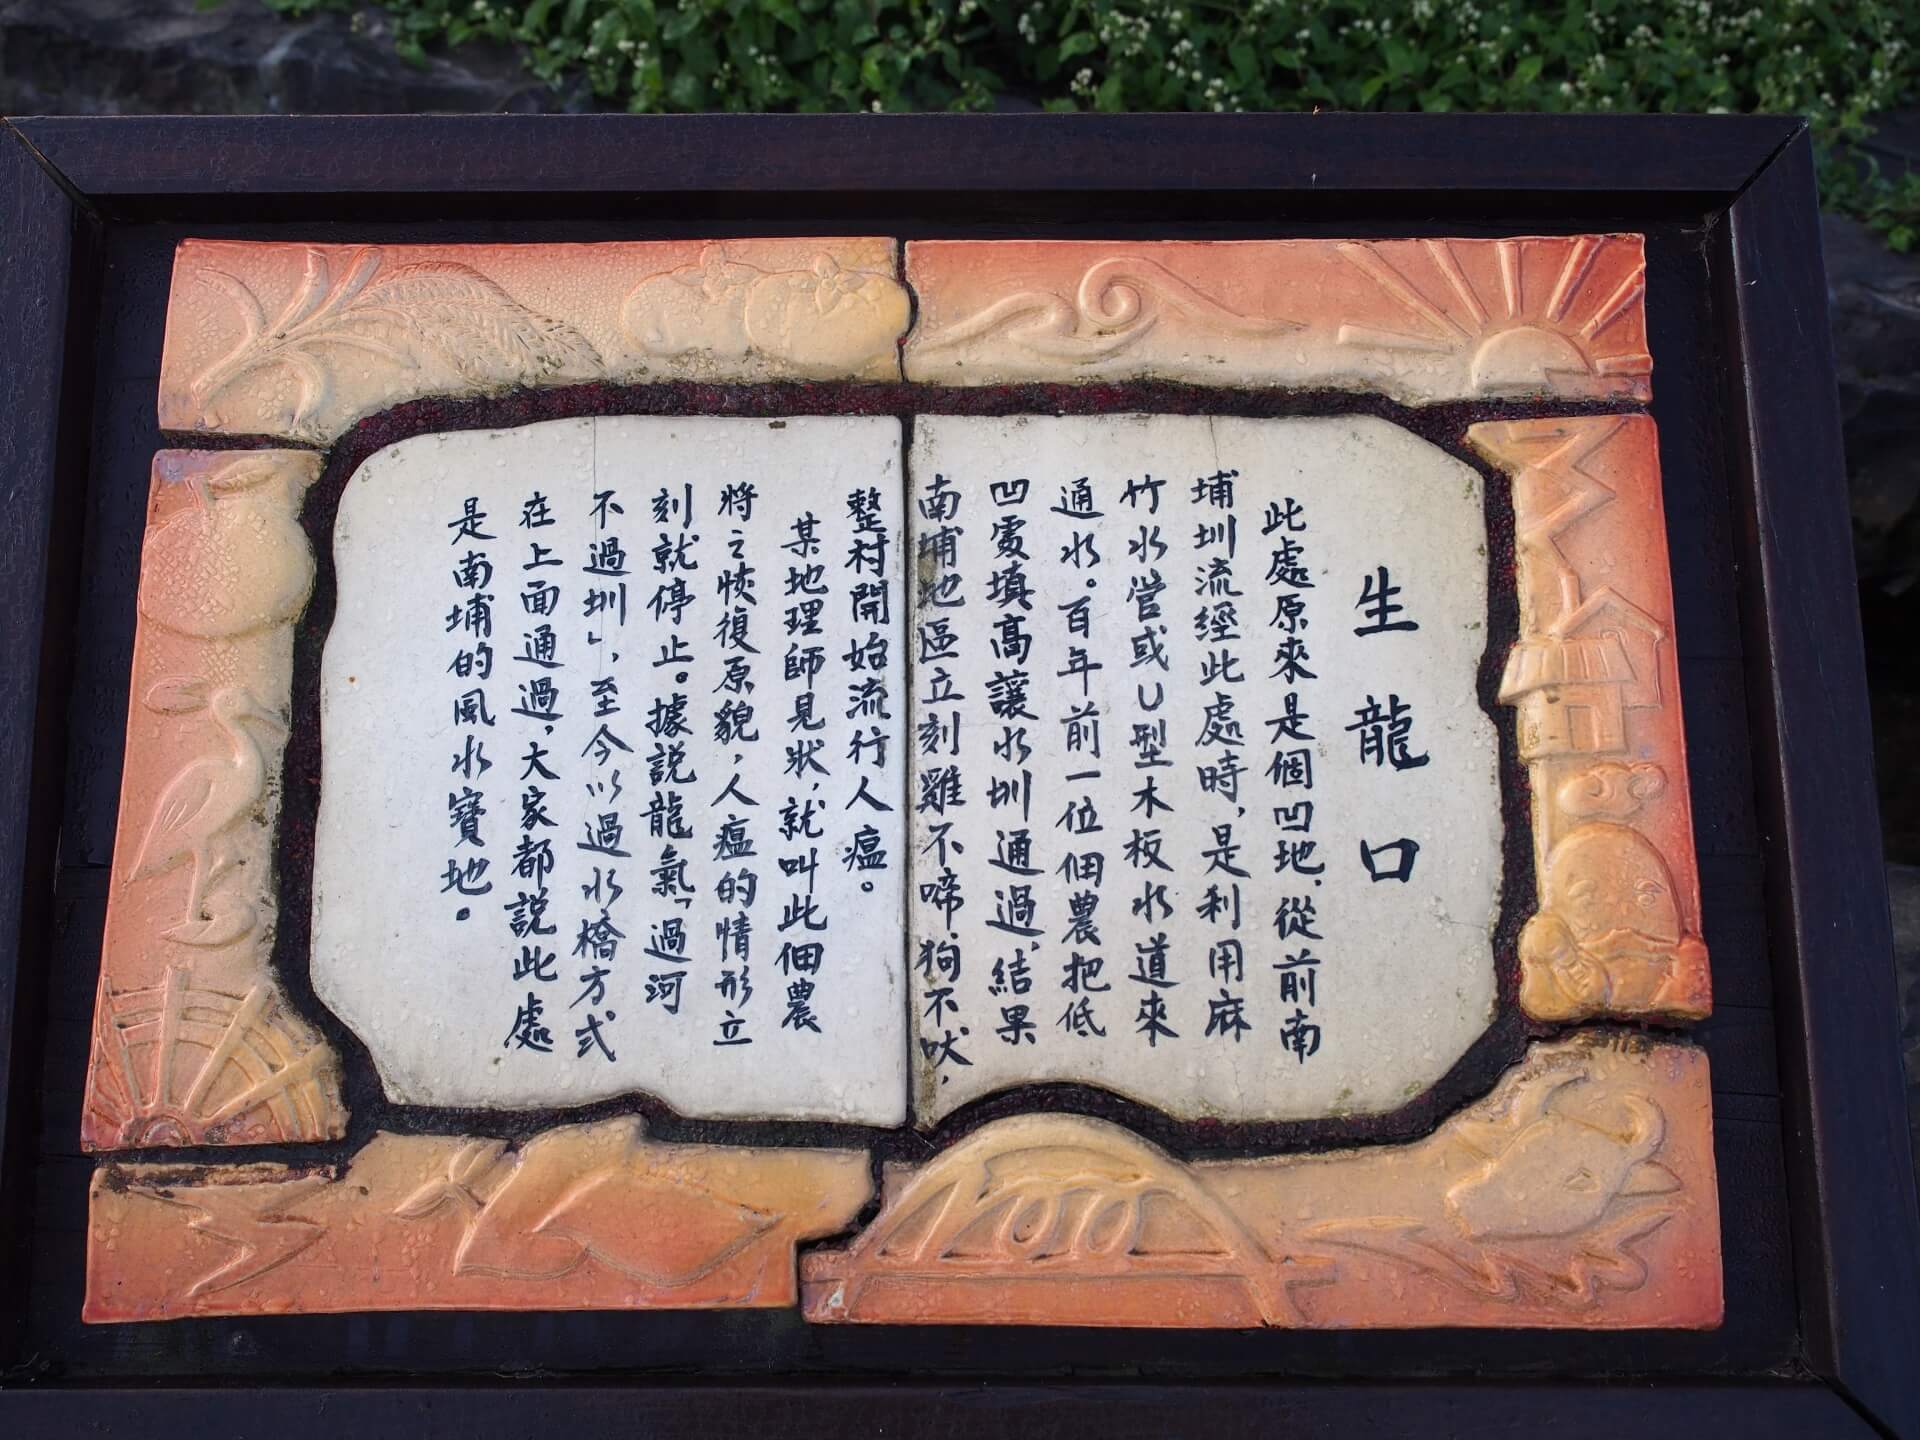 生龍口
此處原來是個凹地，從前南
埔圳流經此處時，是利用麻
竹水管或U型木板水道來
通水。百年前一位佃農把低
凹處填高讓水圳通過，結果
南埔地區立刻雞不啼，狗不吠，
整村開始流行人瘟。
某地理師見狀，就叫此佃農
將之恢復原貌，人瘟的情形立
刻就停止。據說龍氣「過河
不過圳」，至今以過水橋方式
在上面通過，大家都說此處
是南埔的風水寶地。